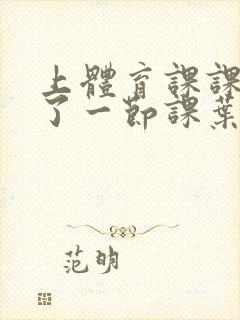 上體育課課
了一節課葉
范明